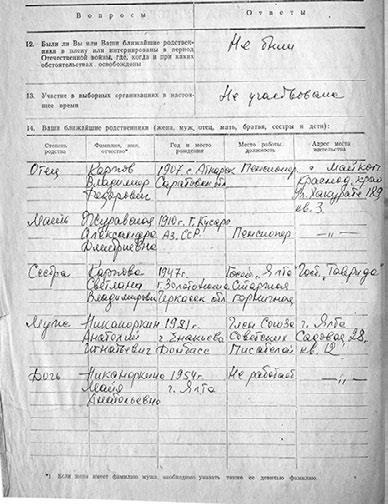 Вопросы Ответы
12. Были ли Вы или Ваши ближайшие родственники в плену или интернированы в период Отечественной войны, где, когда и при каких обстоятельствах освобождены
Не были
13. Участие в выборных организациях в настоящее время
Не участвовала
14. Ваши ближайшие родственники (жена, муж, отец, мать, братья, сестры и дети):
Степень родства Фамилия, имя, отчество* Год и место рождения Место работы, должность Адрес места жительства
Отец Карпов 1907 с. Аткарск Пенсионер г. Майкоп
Владимир Саратовск. обл Краснод. края
Федорович ул. Хакурате 189
кв. 3.
Мать 1910 г. г. Кусары
Александра Аз. ССР. Пенсионер —„—
Дмитриевна
Сестра Карпова 1947 г. Ялта Гост. "Таврида"
Светлана г. Золотоноша Старшая
Владимировн Черкасск обл горничная
Муж Никаноркин 1921 г. Член Союза г. Ялта
Анатолий г. Енакиево Советских Садовая 28,
Игнатьевич Донбасс Писателей кв. 12
Дочь Никаноркина 1954 г. Не работает —„—
Майя г. Ялта
Анатольевна
*) Если жена имеет фамилию мужа, необходимо указать также ее девичью фамилию.